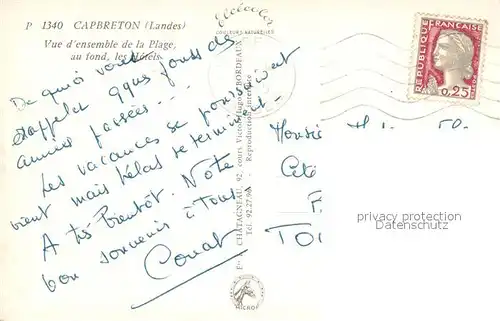 P 1340 CAPBRETON (Landes)
Vue d'ensemble de la Plage,
au fond, les Hôtels.
Elcécolor
COULEURS NATURELLES
RÉPUBLIQUE FRANÇAISE
0,25
De quoi vous
rappeler qques jours des
années passées...
Les vacances se poursuivent
vient mais hélas se terminent.
A très bientôt. Notre
bon souvenir à Tous.
CHATAGNEAU, 92, cours Victor-Hugo, BORDEAUX
Tél. 92.27.90 - Reproduction interdite
Cité
F
TO
privacy protection
Datenschutz